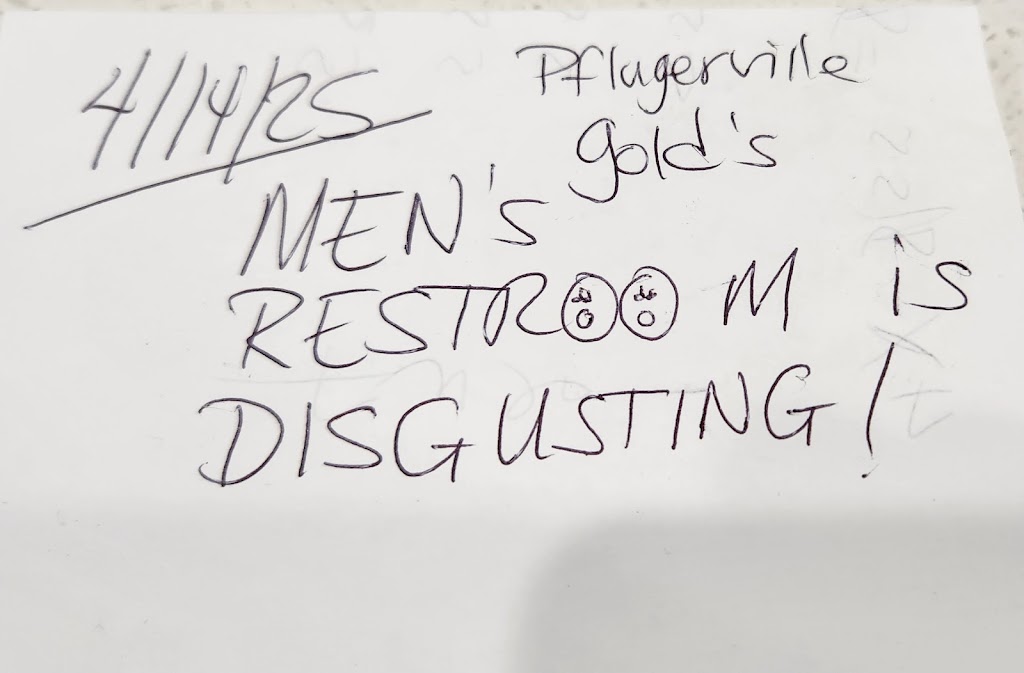 4/14/25
Pflugerville
Gold's
MEN's
RESTROOM is
DISGUSTING!